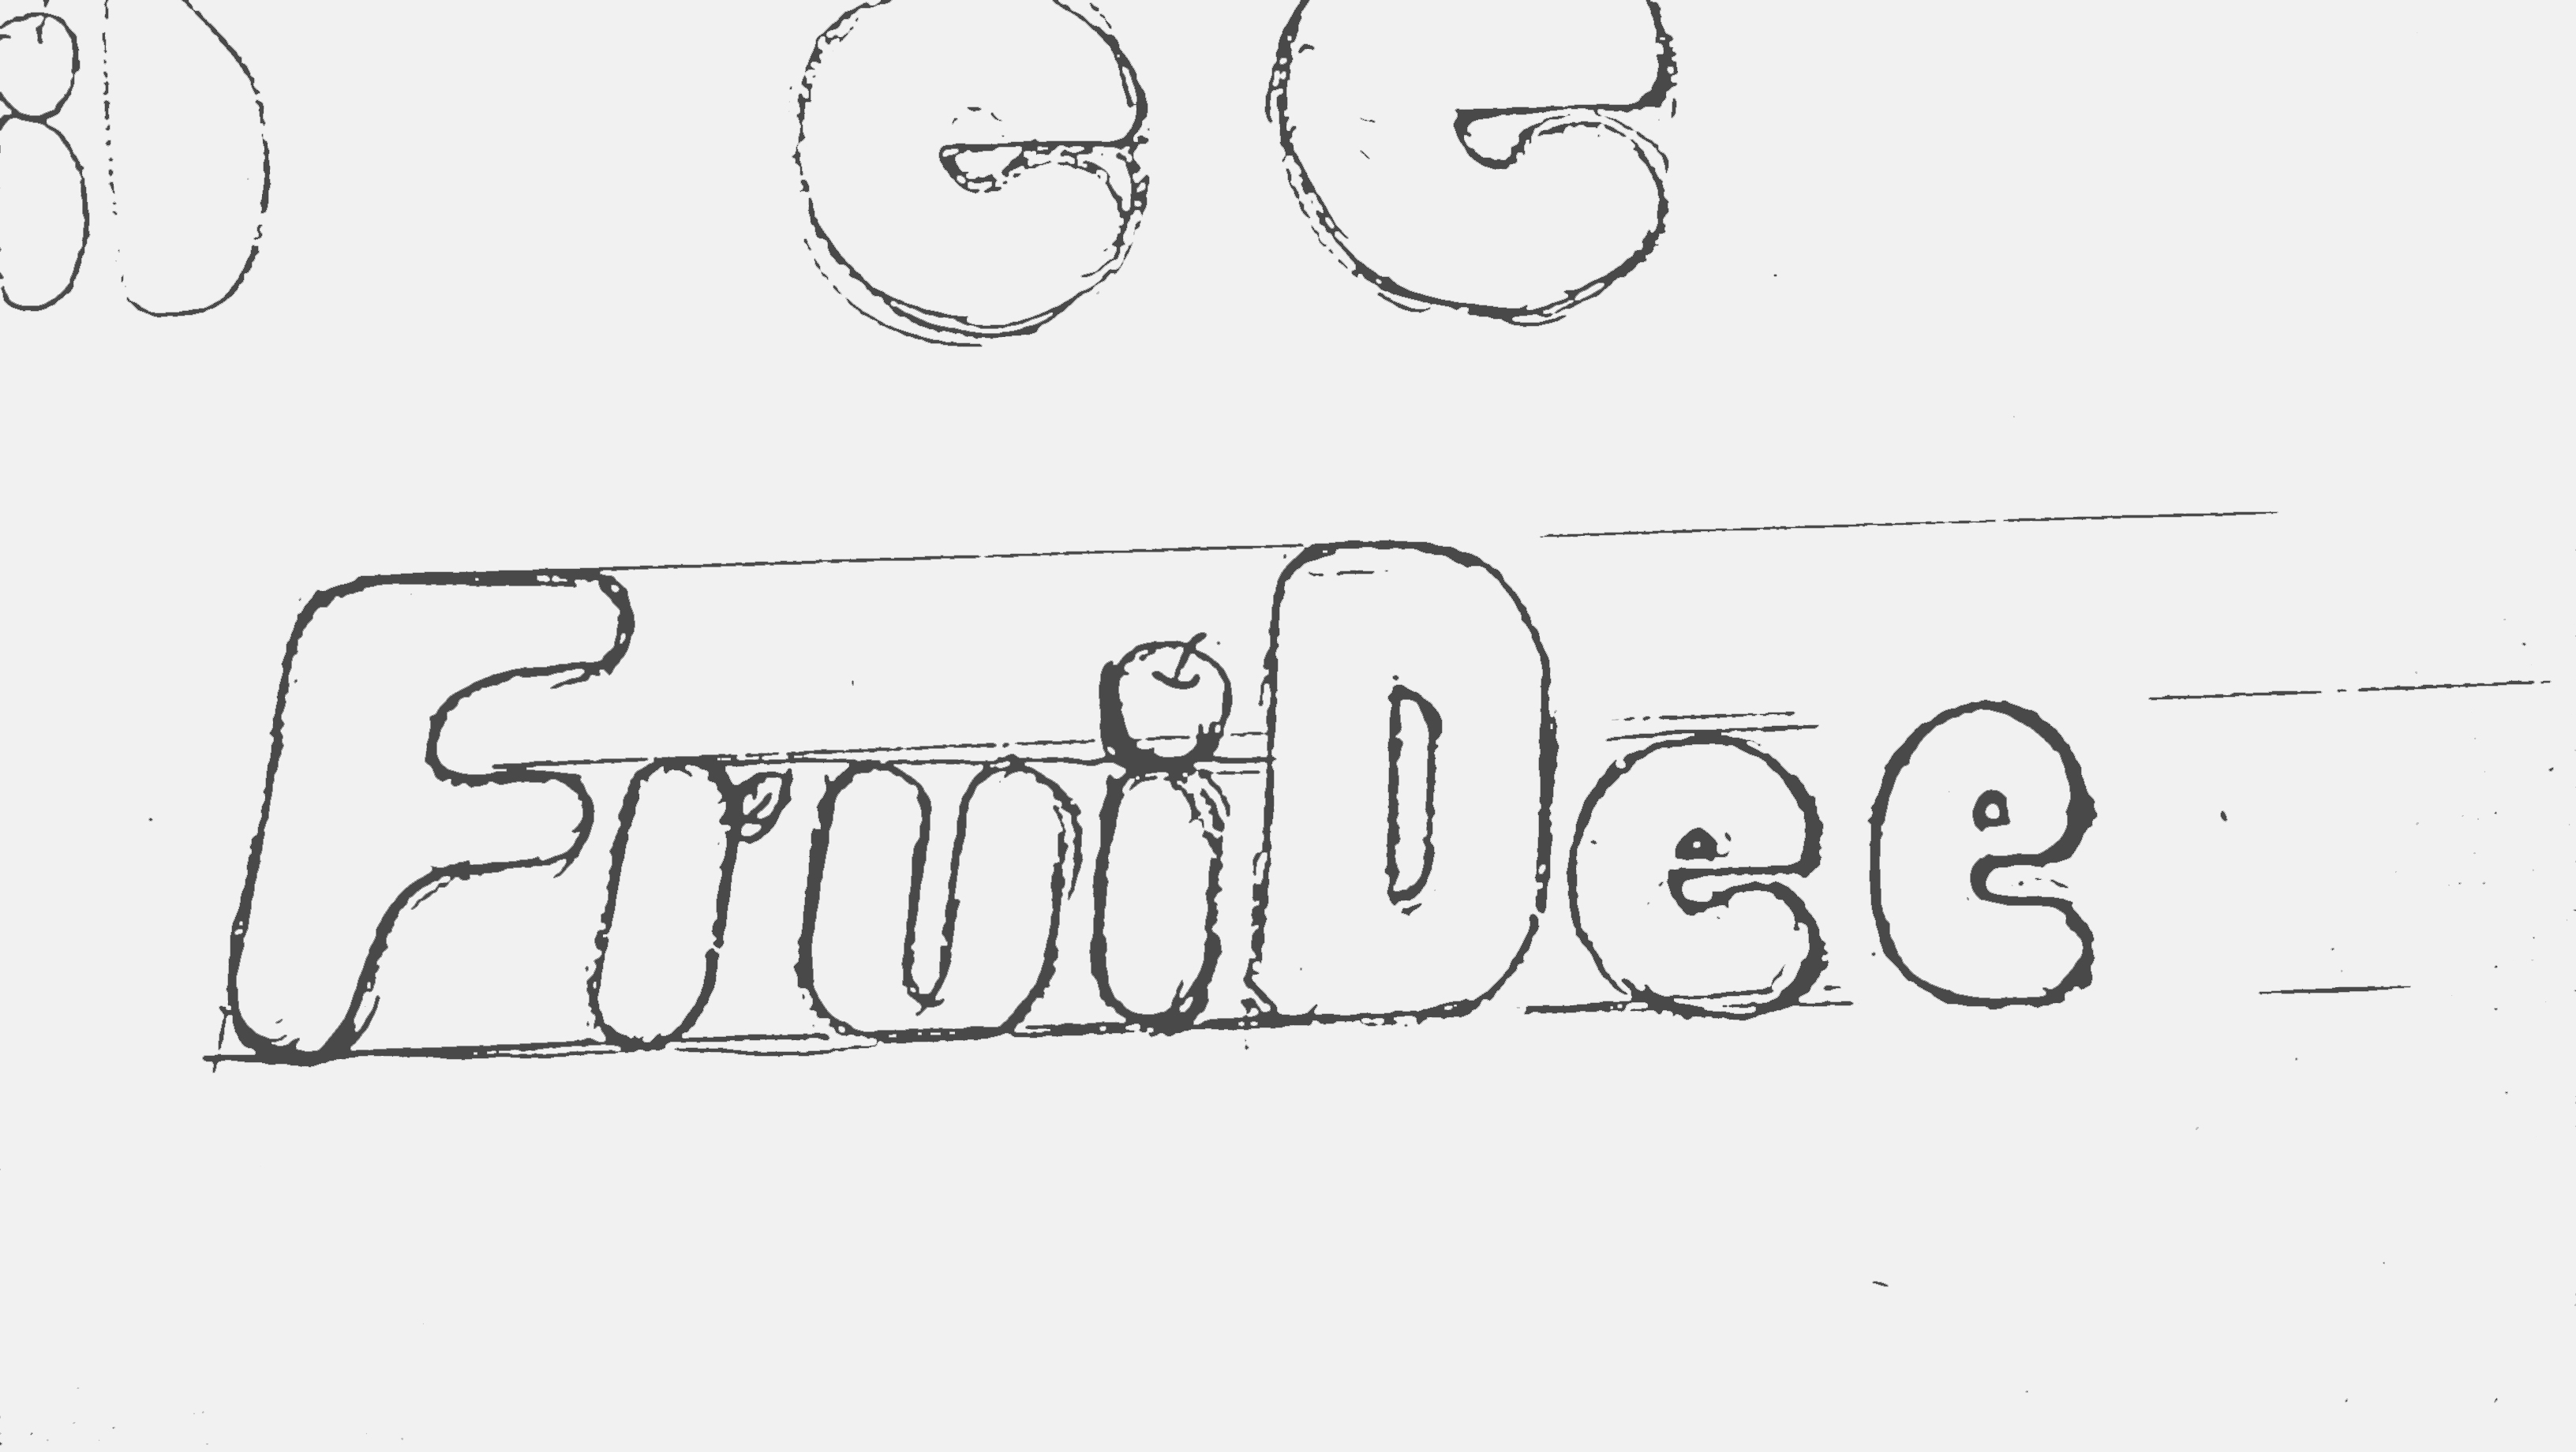 iD e e
FruiDee